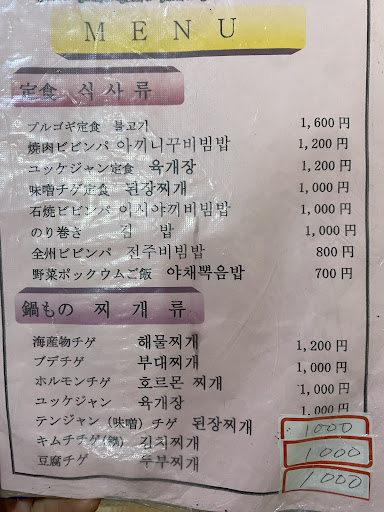 MENU
定食 식사류
プルゴギ定食 불고기 1,600円
焼肉ビビンパ 아끼니꾸비빔밥 1,200円
ユッケジャン定食 육개장 1,200円
味噌チゲ定食 된장찌개 1,000円
石焼ビビンパ 이시야끼비빔밥 1,000円
のり巻き 김 밥 1,000円
全州ビビンパ 전주비빔밥 800円
野菜ポックウムご飯 야채뽁음밥 700円
鍋もの 찌개류
海産物チゲ 해물찌개 1,200円
プデチゲ 부대찌개 1,000円
ホルモンチゲ 호르몬 찌개 1,000円
ユッケジャン 육개장 1,000円
テンジャン(味噌)チゲ 된장찌개 1000
キムチチゲ(鍋) 김치찌개 1000
豆腐チゲ 두부찌개 1000